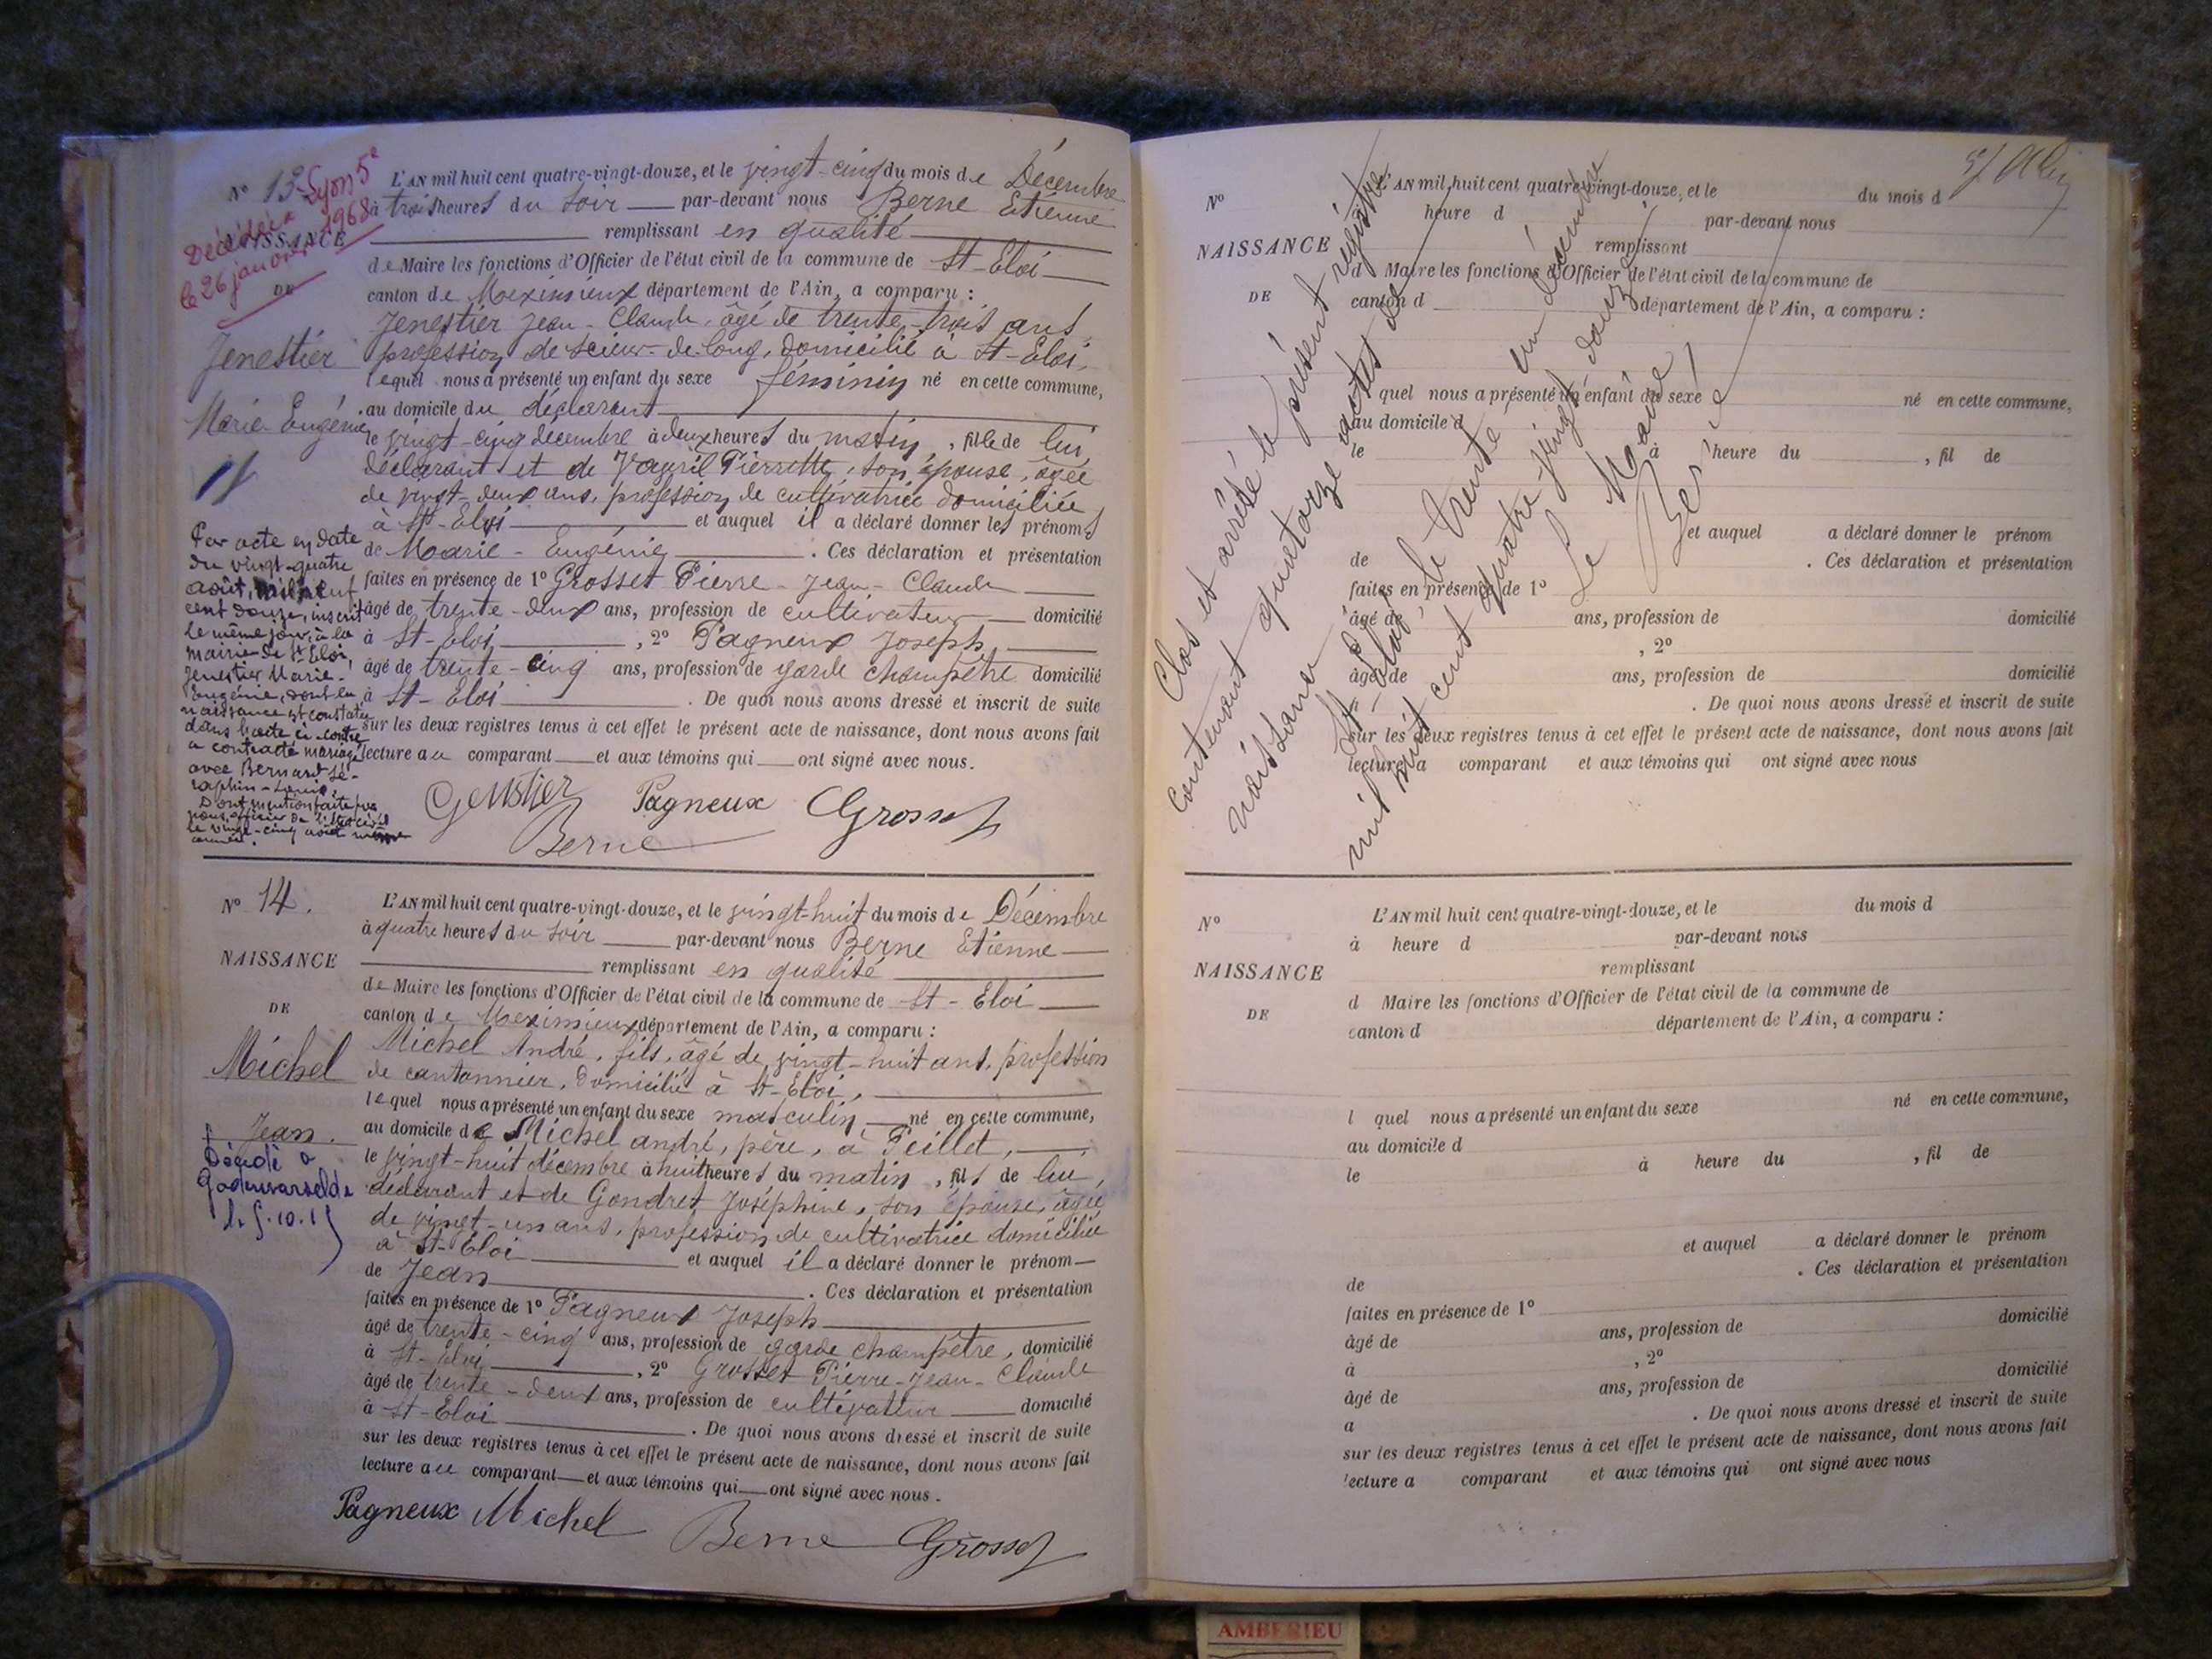 Nº 13
Décédée à Lyon 5e
le 26 janvier 1968
NAISSANCE
DE
Jenestier
Marie Eugénie
Par acte en date
du vingt-quatre
août, mil neuf
cent douze, inscrit
le même jour, à la
mairie de St Eloi,
Jenestier Marie-
Eugénie, dont la
naissance est constatée
dans l'acte ci-contre
a contracté mariage
avec Bernard Sé-
raphin-Louis.
Dont mention faite par
nous, officier de l'état civil
le vingt-cinq août même
année.
L'AN mil huit cent quatre-vingt-douze, et le vingt-cinq du mois de Décembre
à trois heures du soir par-devant nous Berne Etienne
remplissant en qualité
de Maire les fonctions d'Officier de l'état civil de la commune de St-Eloi
canton de Meximieux département de l'Ain, a comparu :
Jenestier Jean-Claude, âgé de trente-trois ans,
profession de scieur-de-long, domicilié à St-Eloi,
lequel nous a présenté un enfant du sexe féminin né en cette commune,
au domicile du déclarant
le vingt-cinq décembre à deux heures du matin, fille de lui,
déclarant et de Pierrette, son épouse, âgée
de vingt-deux ans, profession de cultivatrice domiciliée
à St-Eloi et auquel il a déclaré donner les prénoms
de Marie-Eugénie . Ces déclaration et présentation
faites en présence de 1º Grosset Pierre-Jean-Claude
âgé de trente-deux ans, profession de cultivateur domicilié
à St-Eloi , 2º Pagneux Joseph
âgé de trente-cinq ans, profession de garde champêtre domicilié
à St-Eloi . De quoi nous avons dressé et inscrit de suite
sur les deux registres tenus à cet effet le présent acte de naissance, dont nous avons fait
lecture au comparant et aux témoins qui ont signé avec nous.
Genestier Pagneux Grosset
Berne
Nº 14.
NAISSANCE
DE
Michel
Jean.
Décédé à
le 5.10.15
L'AN mil huit cent quatre-vingt-douze, et le vingt-huit du mois de Décembre
à quatre heures du soir par-devant nous Berne Etienne
remplissant en qualité
de Maire les fonctions d'Officier de l'état civil de la commune de St-Eloi
canton de Meximieux département de l'Ain, a comparu :
Michel André, fils, âgé de vingt-huit ans, profession
de cantonnier, domicilié à St-Eloi,
lequel nous a présenté un enfant du sexe masculin né en cette commune,
au domicile de Michel André, père, à Peillet,
le vingt-huit décembre à huit heures du matin, fils de lui,
déclarant et de Gondret Joséphine, son épouse, âgée
de vingt-un ans, profession de cultivatrice domiciliée
à St-Eloi et auquel il a déclaré donner le prénom
de Jean . Ces déclaration et présentation
faites en présence de 1º Pagneux Joseph
âgé de trente-cinq ans, profession de garde champêtre, domicilié
à St-Eloi , 2º Grosset Pierre-Jean-Claude
âgé de trente-deux ans, profession de cultivateur domicilié
à St-Eloi . De quoi nous avons dressé et inscrit de suite
sur les deux registres tenus à cet effet le présent acte de naissance, dont nous avons fait
lecture au comparant et aux témoins qui ont signé avec nous.
Pagneux Michel Berne Grosset
Nº
NAISSANCE
DE
L'AN mil huit cent quatre-vingt-douze, et le du mois d
heure d par-devant nous
remplissant
d Maire les fonctions d'Officier de l'état civil de la commune de
canton d département de l'Ain, a comparu :
quel nous a présenté un enfant du sexe né en cette commune,
au domicile d
le à heure du , fil de
et auquel a déclaré donner le prénom
de . Ces déclaration et présentation
faites en présence de 1º
âgé de ans, profession de domicilié
, 2º
âgé de ans, profession de domicilié
. De quoi nous avons dressé et inscrit de suite
sur les deux registres tenus à cet effet le présent acte de naissance, dont nous avons fait
lecture a comparant et aux témoins qui ont signé avec nous
Clos et arrêté le présent registre
contenant quatorze actes de
naissance
St-Eloi, le trente un décembre
mil huit cent quatre-vingt douze
Le Maire
Berne
Nº
NAISSANCE
DE
L'AN mil huit cent quatre-vingt-douze, et le du mois d
à heure d par-devant nous
remplissant
d Maire les fonctions d'Officier de l'état civil de la commune de
canton d département de l'Ain, a comparu :
l quel nous a présenté un enfant du sexe né en cette commune,
au domicile d
le à heure du , fil de
et auquel a déclaré donner le prénom
de . Ces déclaration et présentation
faites en présence de 1º
âgé de ans, profession de domicilié
à , 2º
âgé de ans, profession de domicilié
a . De quoi nous avons dressé et inscrit de suite
sur les deux registres tenus à cet effet le présent acte de naissance, dont nous avons fait
lecture a comparant et aux témoins qui ont signé avec nous
AMBERIEU